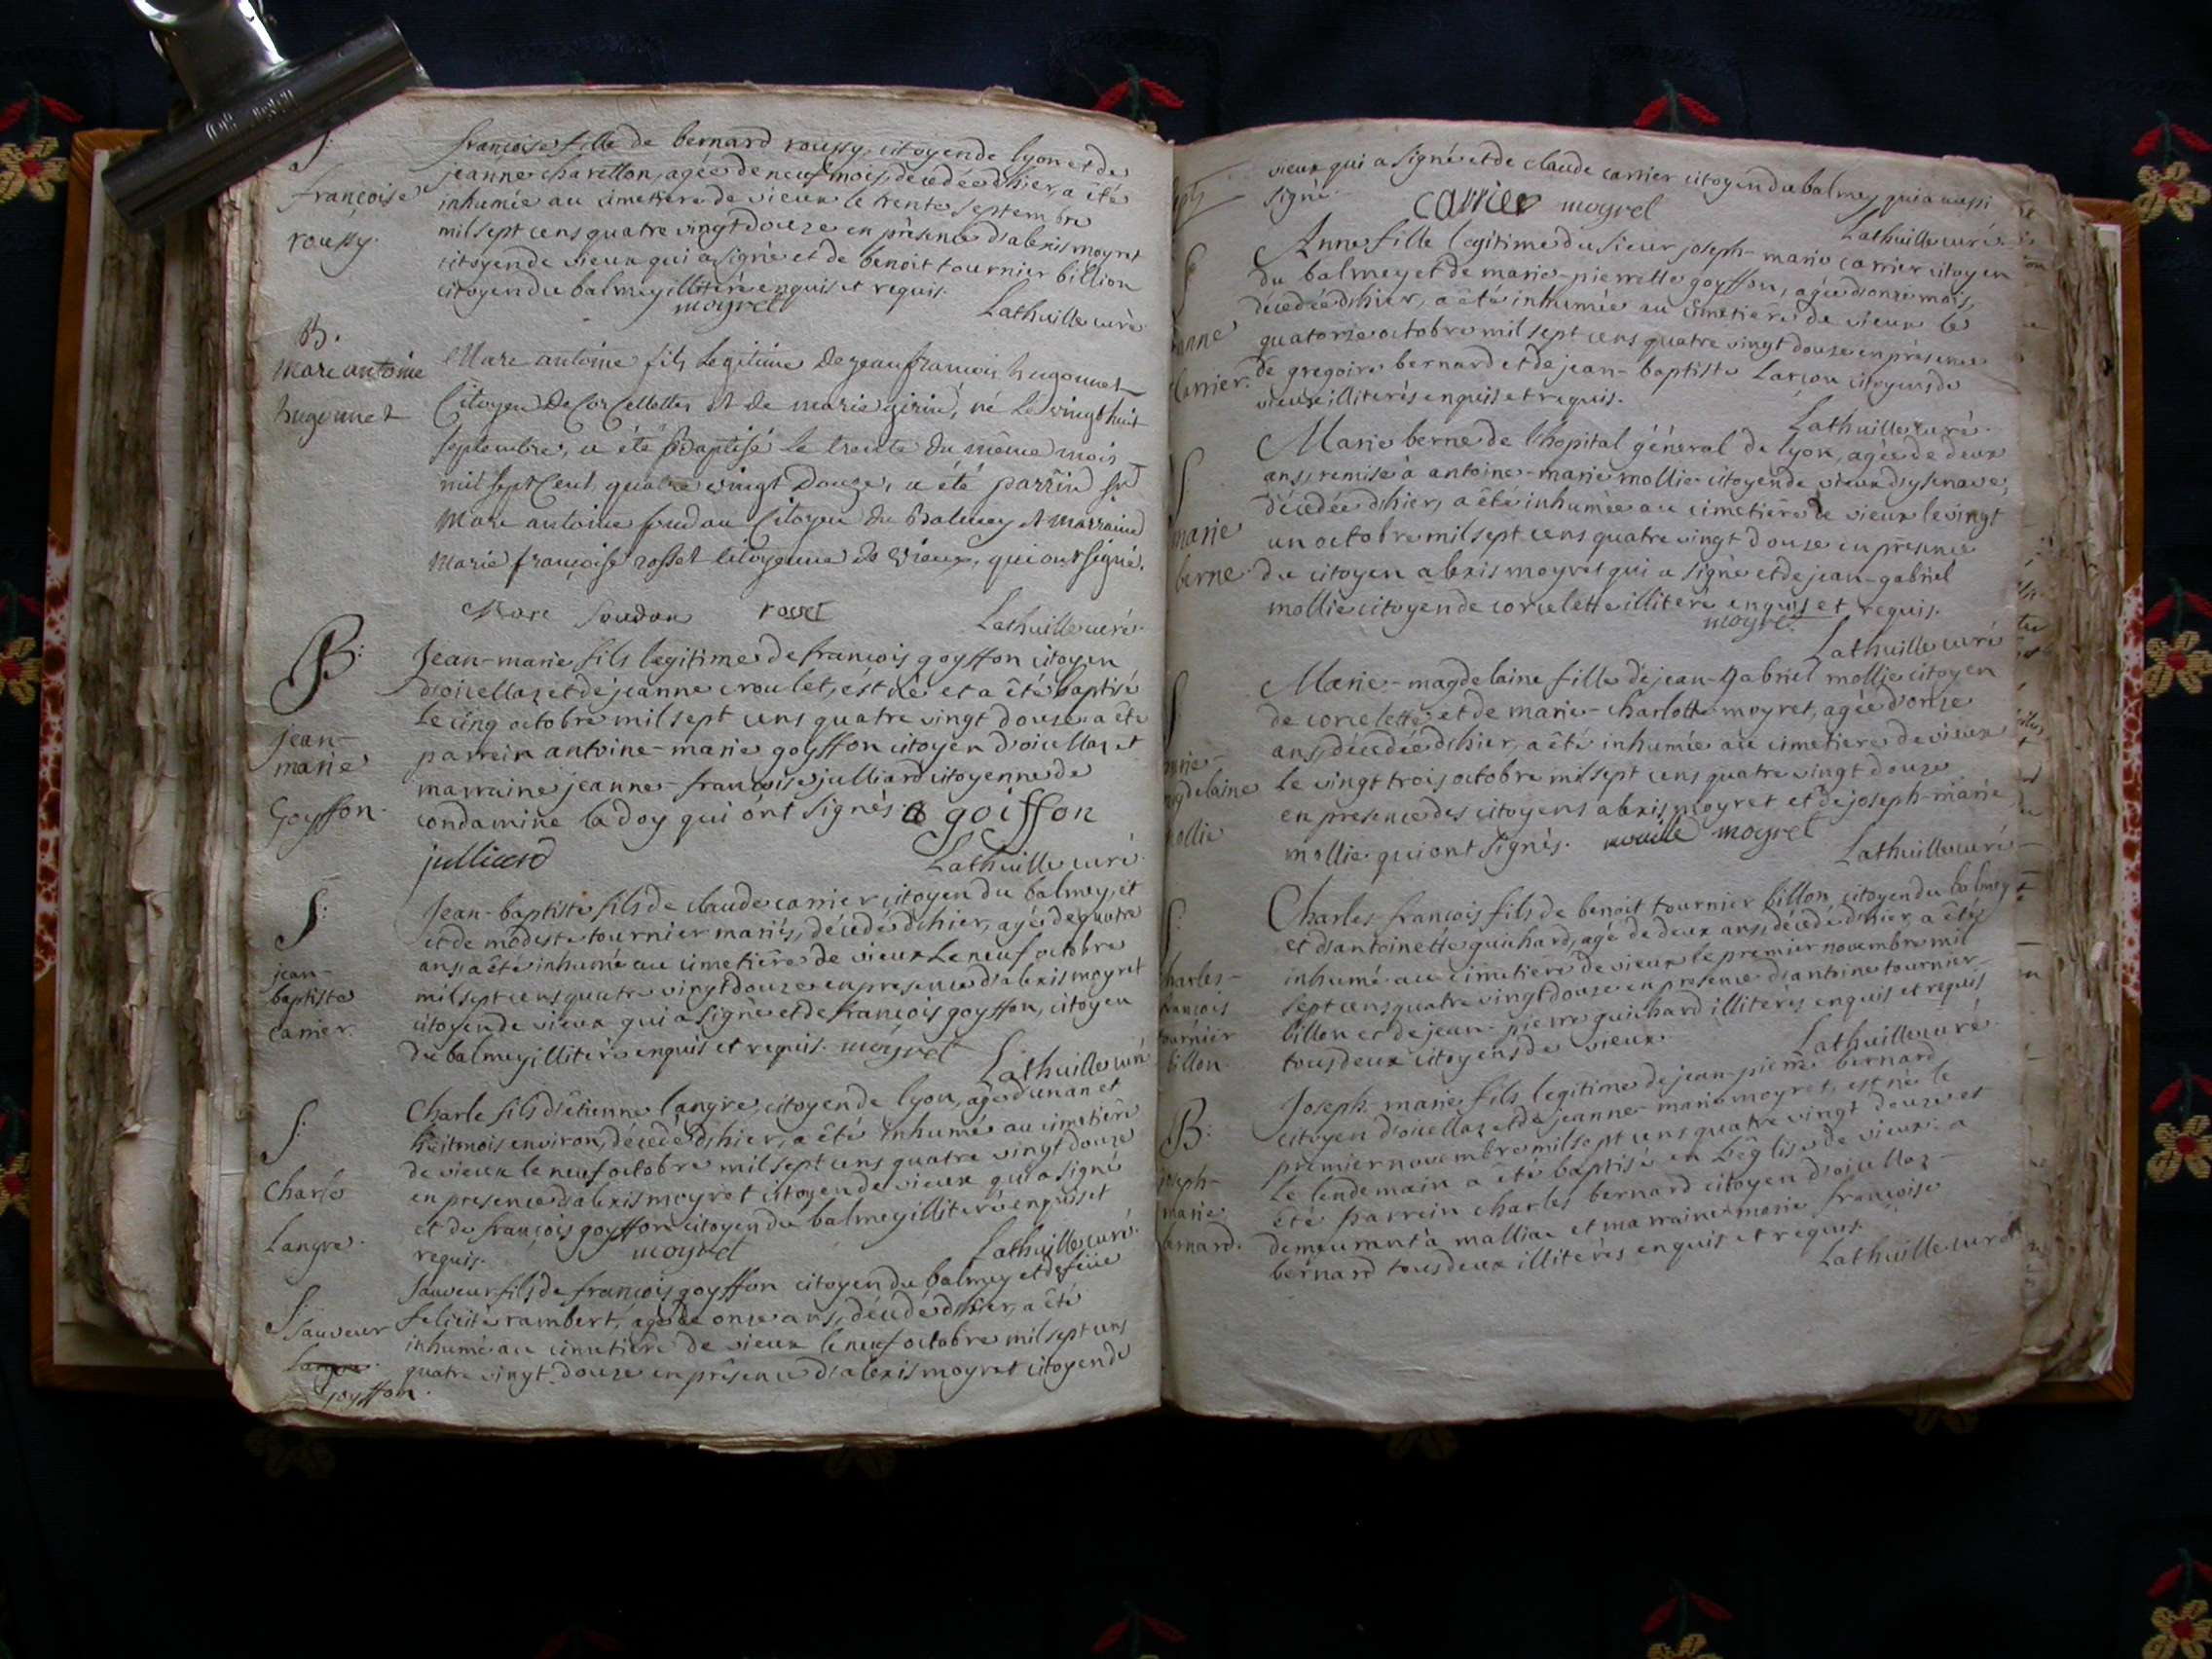 S.
françoise
roussy.
françoise fille de bernard roussy citoyen de lyon et de
jeanne charetton, agée de neuf mois, décédée d'hier, a été
inhumée au cimetière de vieux le trente septembre
mil sept cens quatre vingt douze en présence d'alexis moyret
citoyen de vieux qui a signé et de benoit tournier billion
citoyen du balmey illiteré enquis et requis.
moyret
Lathuille curé
B.
Marc antoine
hugonnet
Marc antoine fils legitime de jean françois hugonnet
Citoyen de Corcellettes et de marie girin, né le vingt huit
septembre, a été Baptisé le trente du même mois
mil sept Cent quatre vingt Douze, a été parrin sr
Marc antoine soudan Citoyen du Balmey et marraine
Marie françoise rosset citoyenne de Vieux, qui ont signé.
Marc Soudan
Lathuille curé
B:
jean-
marie
Goyffon.
Jean-marie fils legitime de françois goyffon citoyen
d'oisellaz et de jeanne croulet, est né et a été baptisé
le cinq octobre mil sept cens quatre vingt douze a été
parrein antoine-marie goyffon citoyen d'oisellaz et
marraine jeanne-françoise julliard citoyenne de
condamine la doy qui ont signés. a goiffon
julliard
Lathuille curé
S:
jean-
baptiste
Carrier.
Jean-baptiste fils de claude carrier citoyen du balmey, et
et de modeste tournier mariés, décédé d'hier, agé de quatre
ans, a été inhumé au cimetière de vieux Le neuf octobre
mil sept cens quatre vingt douze en presence d'alexis moyret
citoyen de vieux qui a signé et de françois goyffon, citoyen
du balmey illiteré enquis et requis. moyret
Lathuille curé
S:
Charle
Langre.
Charle fils d'étienne langre, citoyen de lyon, agé d'un an et
huit mois environ, décédé d'hier, a été inhumé au cimetière
de vieux le neuf octobre mil sept cens quatre vingt douze
en presence d'alexis moyret citoyen de vieux qui a signé
et de françois goyffon citoyen du balmey illiteré enquis et
requis. moyret
Lathuille curé
S:
Sauveur
Langre.
goyffon.
Sauveur fils de françois goyffon citoyen du balmey et de feüe
felicité rambert, agé de onze ans, décédé d'hier, a été
inhumé au cimetière de vieux le neuf octobre mil sept cens
quatre vingt douze en présence d'alexis moyret citoyen de
vieux qui a signé et de claude carrier citoyen du balmey qui a aussi
signé. carrier moyret
Lathuille curé
S
anne
Carrier.
Anne fille legitime du sieur joseph-marie carrier citoyen
du balmey et de marie-pierrette goyffon, agée d'onze mois,
décédée d'hier, a été inhumée au cimetière de vieux le
quatorze octobre mil sept cens quatre vingt douze en présence
de gregoire bernard et de jean-baptiste Larçon citoyens de
vieux illiterés enquis et requis.
Lathuille curé.
S
marie
berne.
Marie berne de l'hopital général de lyon, agée de deux
ans, remise à antoine-marie mollie citoyen de vieux d'ysenave,
décédée d'hier, a été inhumée au cimetière de vieux le vingt
un octobre mil sept cens quatre vingt douze en présence
du citoyen alexis moyret qui a signé et de jean-gabriel
mollie citoyen de corcelette illiteré enquis et requis.
moyret
Lathuille curé
S.
marie-
magdelaine
mollie
Marie-magdelaine fille de jean-gabriel mollie citoyen
de corcelette et de marie-charlotte moyret, agée d'onze
ans, décédée d'hier, a été inhumée au cimetiere de vieux
le vingt trois octobre mil sept cens quatre vingt douze
en presence des citoyens alexis moyret et de joseph-marie
mollie qui ont signés. moyret
Lathuille curé
S.
Charles-
françois
tournier
billon.
Charles françois fils de benoit tournier billon, citoyen du balmey
et d'antoinette guichard, agé de deux ans, décédé d'hier, a été
inhumé au cimetière de vieux le premier novembre mil
sept cens quatre vingt douze en presence d'antoine tournier
billon et de jean-pierre guichard illiterés enquis et requis
tous deux citoyens de vieux.
Lathuille curé
B:
joseph-
marie
bernard.
Joseph-marie fils legitime de jean-pierre bernard
citoyen d'oisellaz et de jeanne-marie moyret, est né le
premier novembre mil sept cens quatre vingt douze et
Le lendemain a été baptisé en l'église de vieux. a
été parrein charles bernard citoyen d'oisellaz
demeurant à malliac et marraine marie françoise
bernard tous deux illiterés enquis et requis.
Lathuille curé